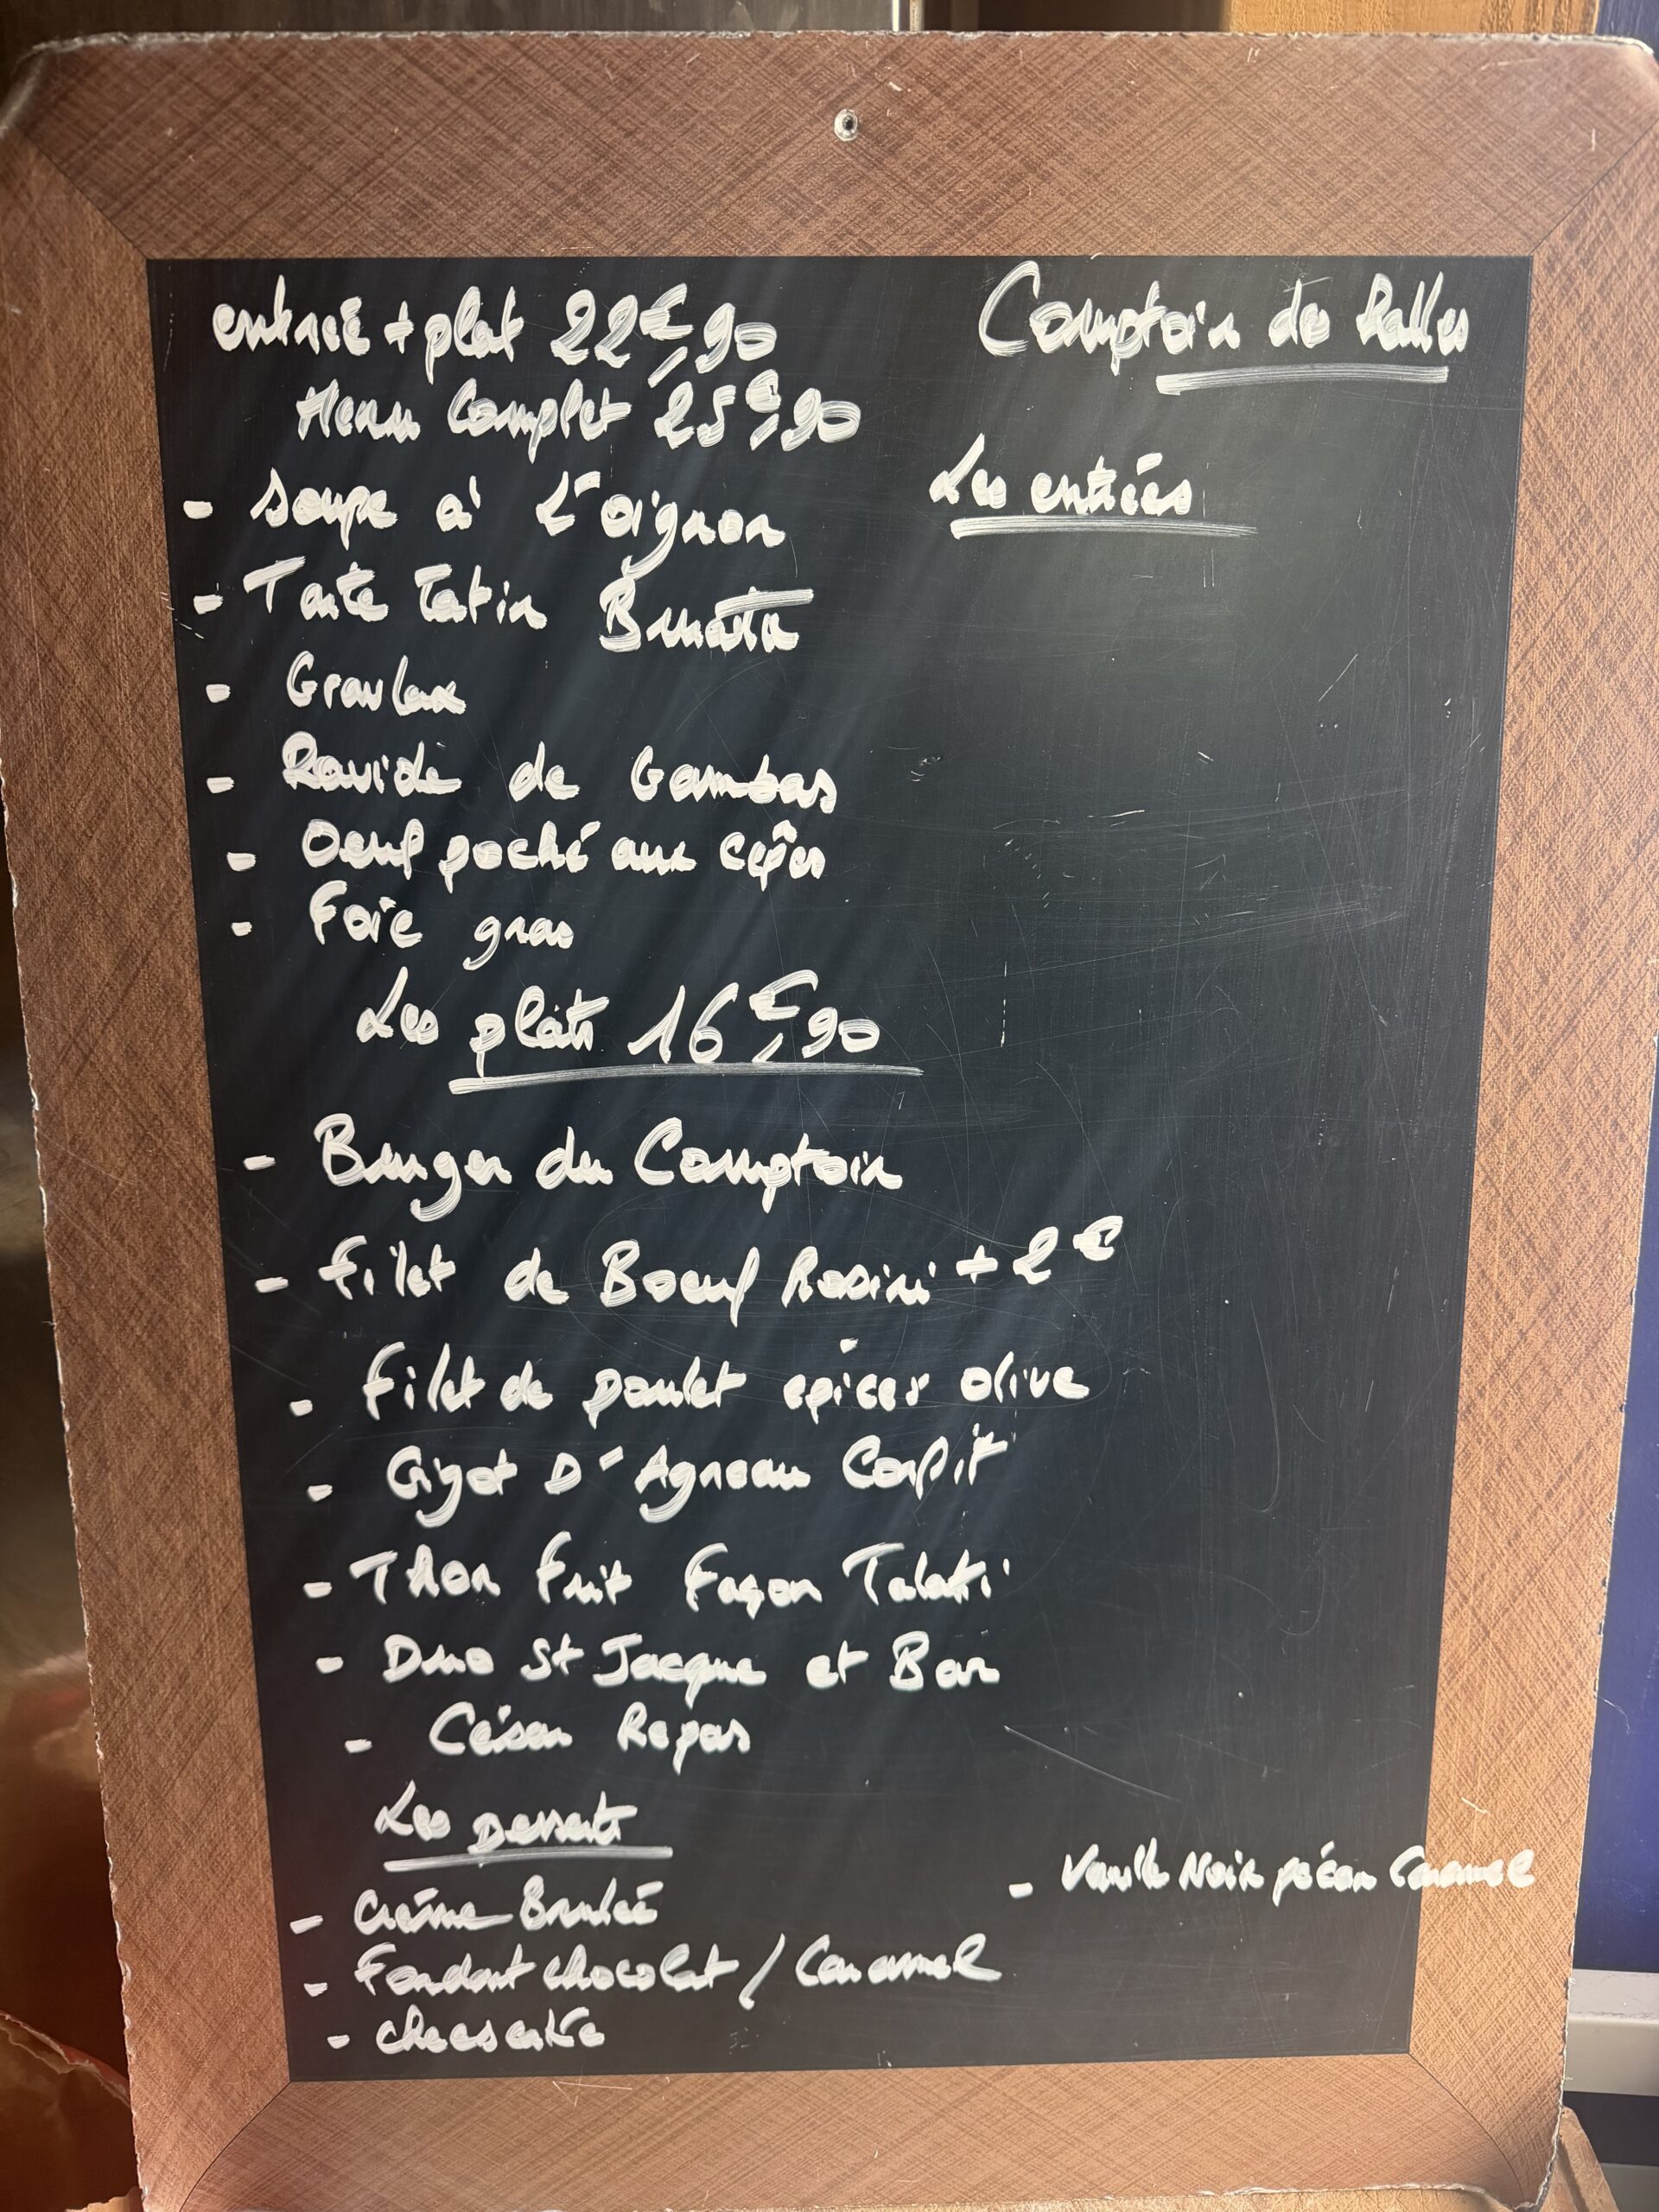 entrée + plat 22€,90
Comptoir des Halles
Menu Complet 25€,90
Les entrées
- Soupe à L'oignon
- Tarte Tatin Burrata
- Gravlax
- Raviole de Gambas
- Oeuf poché aux cèpes
- Foie gras
Les plats 16€,90
- Burger du Comptoir
- Filet de Boeuf Rosini + 2€
- Filet de poulet epices olive
- Gigot D'Agneau Confit
- Thon Fruit Façon Tataki
- Duo St Jacque et Bar
- César Repas
Les Desserts
- Vanille Noix pécan Caramel
- Crème Brulée
- Fondant chocolat / Caramel
- cheescake